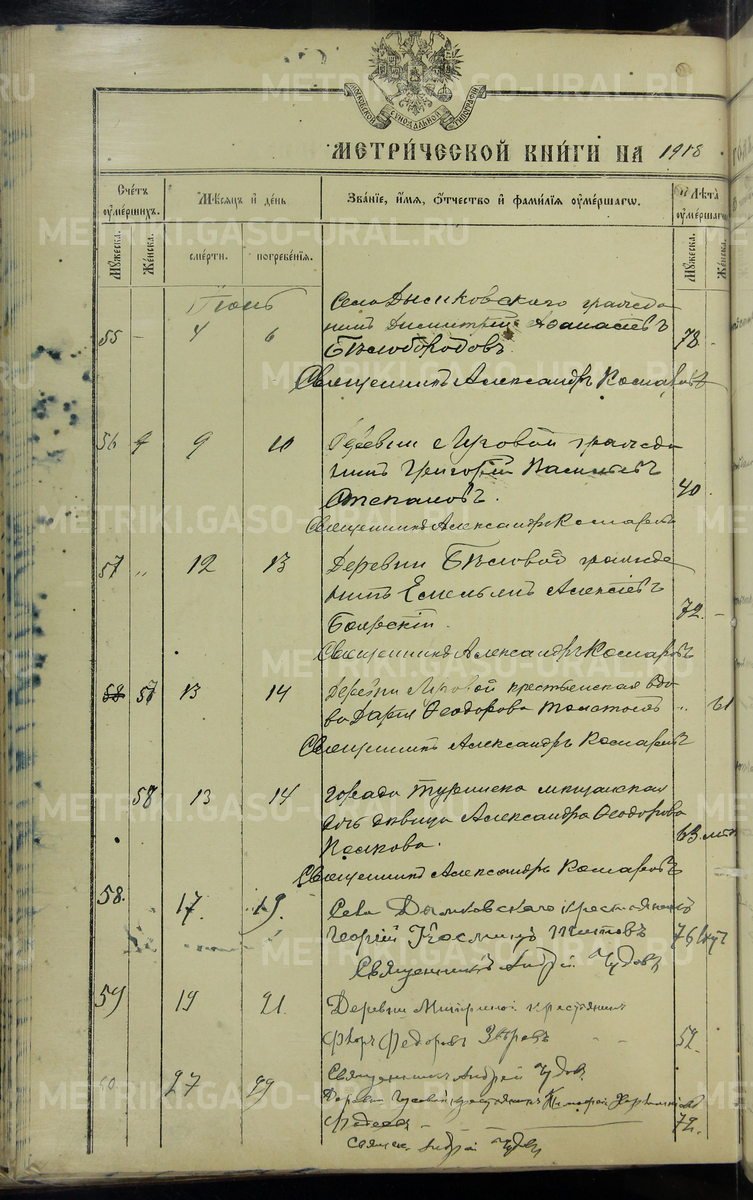 МОСКОВСКОЙ СѴНОДАЛЬНОЙ ТИПОГРАФІИ
МЕТРИ́ЧЕСКОЙ КНИ́ГИ НА 1918
Сче́тъ оуме́ршихъ.
Мѣ́сяцъ и҆ де́нь
Зва́нїе, и҆́мя, ѻ҆́тчество и҆ фами́лїя оуме́ршагѡ.
Лѣ́та оуме́ршагѡ
Мꙋ́жеска. Же́нска. сме́рти. погребе́нїя. Мꙋ́жеска. Же́нска.
Іюнь
55 - 4 6 Села Дымковского гражда
нинъ Димитрій Аѳанасіевъ
Бѣлобородовъ. 78 -
Священникъ Александръ Комаровъ
56 9 10 Деревни Луговой гражда
нинъ Григорій Василіевъ
Степановъ. 40
Священникъ Александръ Комаровъ
57 „ 12 13 Деревни Бѣловой гражда
нинъ Емельянъ Алексіевъ
Боярскій. 72. -
Священникъ Александръ Комаровъ
58 57 13 14 Деревни Луговой крестьянская вдо
ва Дарія Ѳеодорова „ 61
Священникъ Александръ Комаровъ
58 13 14 Города Туринска мѣщанская
дочь дѣвица Александра Ѳеодорова
63 лѣтъ
Священникъ Александръ Комаровъ
58. 17. 19. Села Дымковского крестьянинъ
Георгій Косминъ 76
Священникъ Андрей Чудовъ
59 19 21. Деревни крестьянинъ
Ѳедоровъ Звѣревъ 52.
Священникъ Андрей Чудовъ
60 27 29 Деревни крестьянинъ Тимофей
72.
Священ. Андрей Чудовъ
METRIKI.GASO-URAL.RU